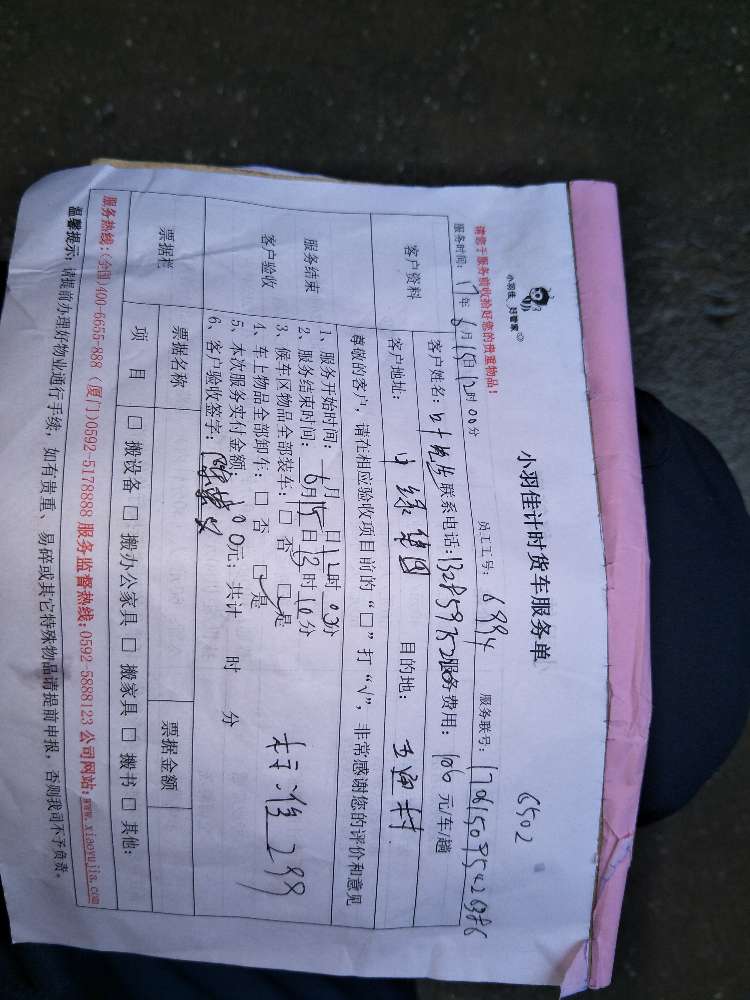 小羽佳 好管家
小羽佳计时货车服务单
6502
请您于服务前收拾好您的贵重物品！
服务时间：17年6月15日12时00分 员工工号：6994 服务联号：
客户资料
客户姓名：叶先生 联系电话： 服务费用：100元/车/趟
客户地址：中绿集团 目的地：
尊敬的客户，请在相应验收项目前的“□”打“√”，非常感谢您的评价和意见
服务结束
客户验收
1、服务开始时间：月日12时03分
2、服务结束时间：6月15日13时10分
3、候车区物品全部装车：□ 否 □ 是
4、车上物品全部卸车：□ 否 □ 是
5、本次服务实付金额：100元；共计 时 分
6、客户验收签字：
票据栏
票据名称 票据金额
项 目 □ 搬设备 □ 搬办公家具 □ 搬家具 □ 搬书 □ 其他：
服务热线：(全国)400-6655-888 (厦门)0592-5178888 服务监督热线：0592-5888123 公司网站：www.xiaoyujia.com
温馨提示：请提前办理好物业通行手续，如有贵重、易碎或其它特殊物品请提前申报，否则我司不予负责。